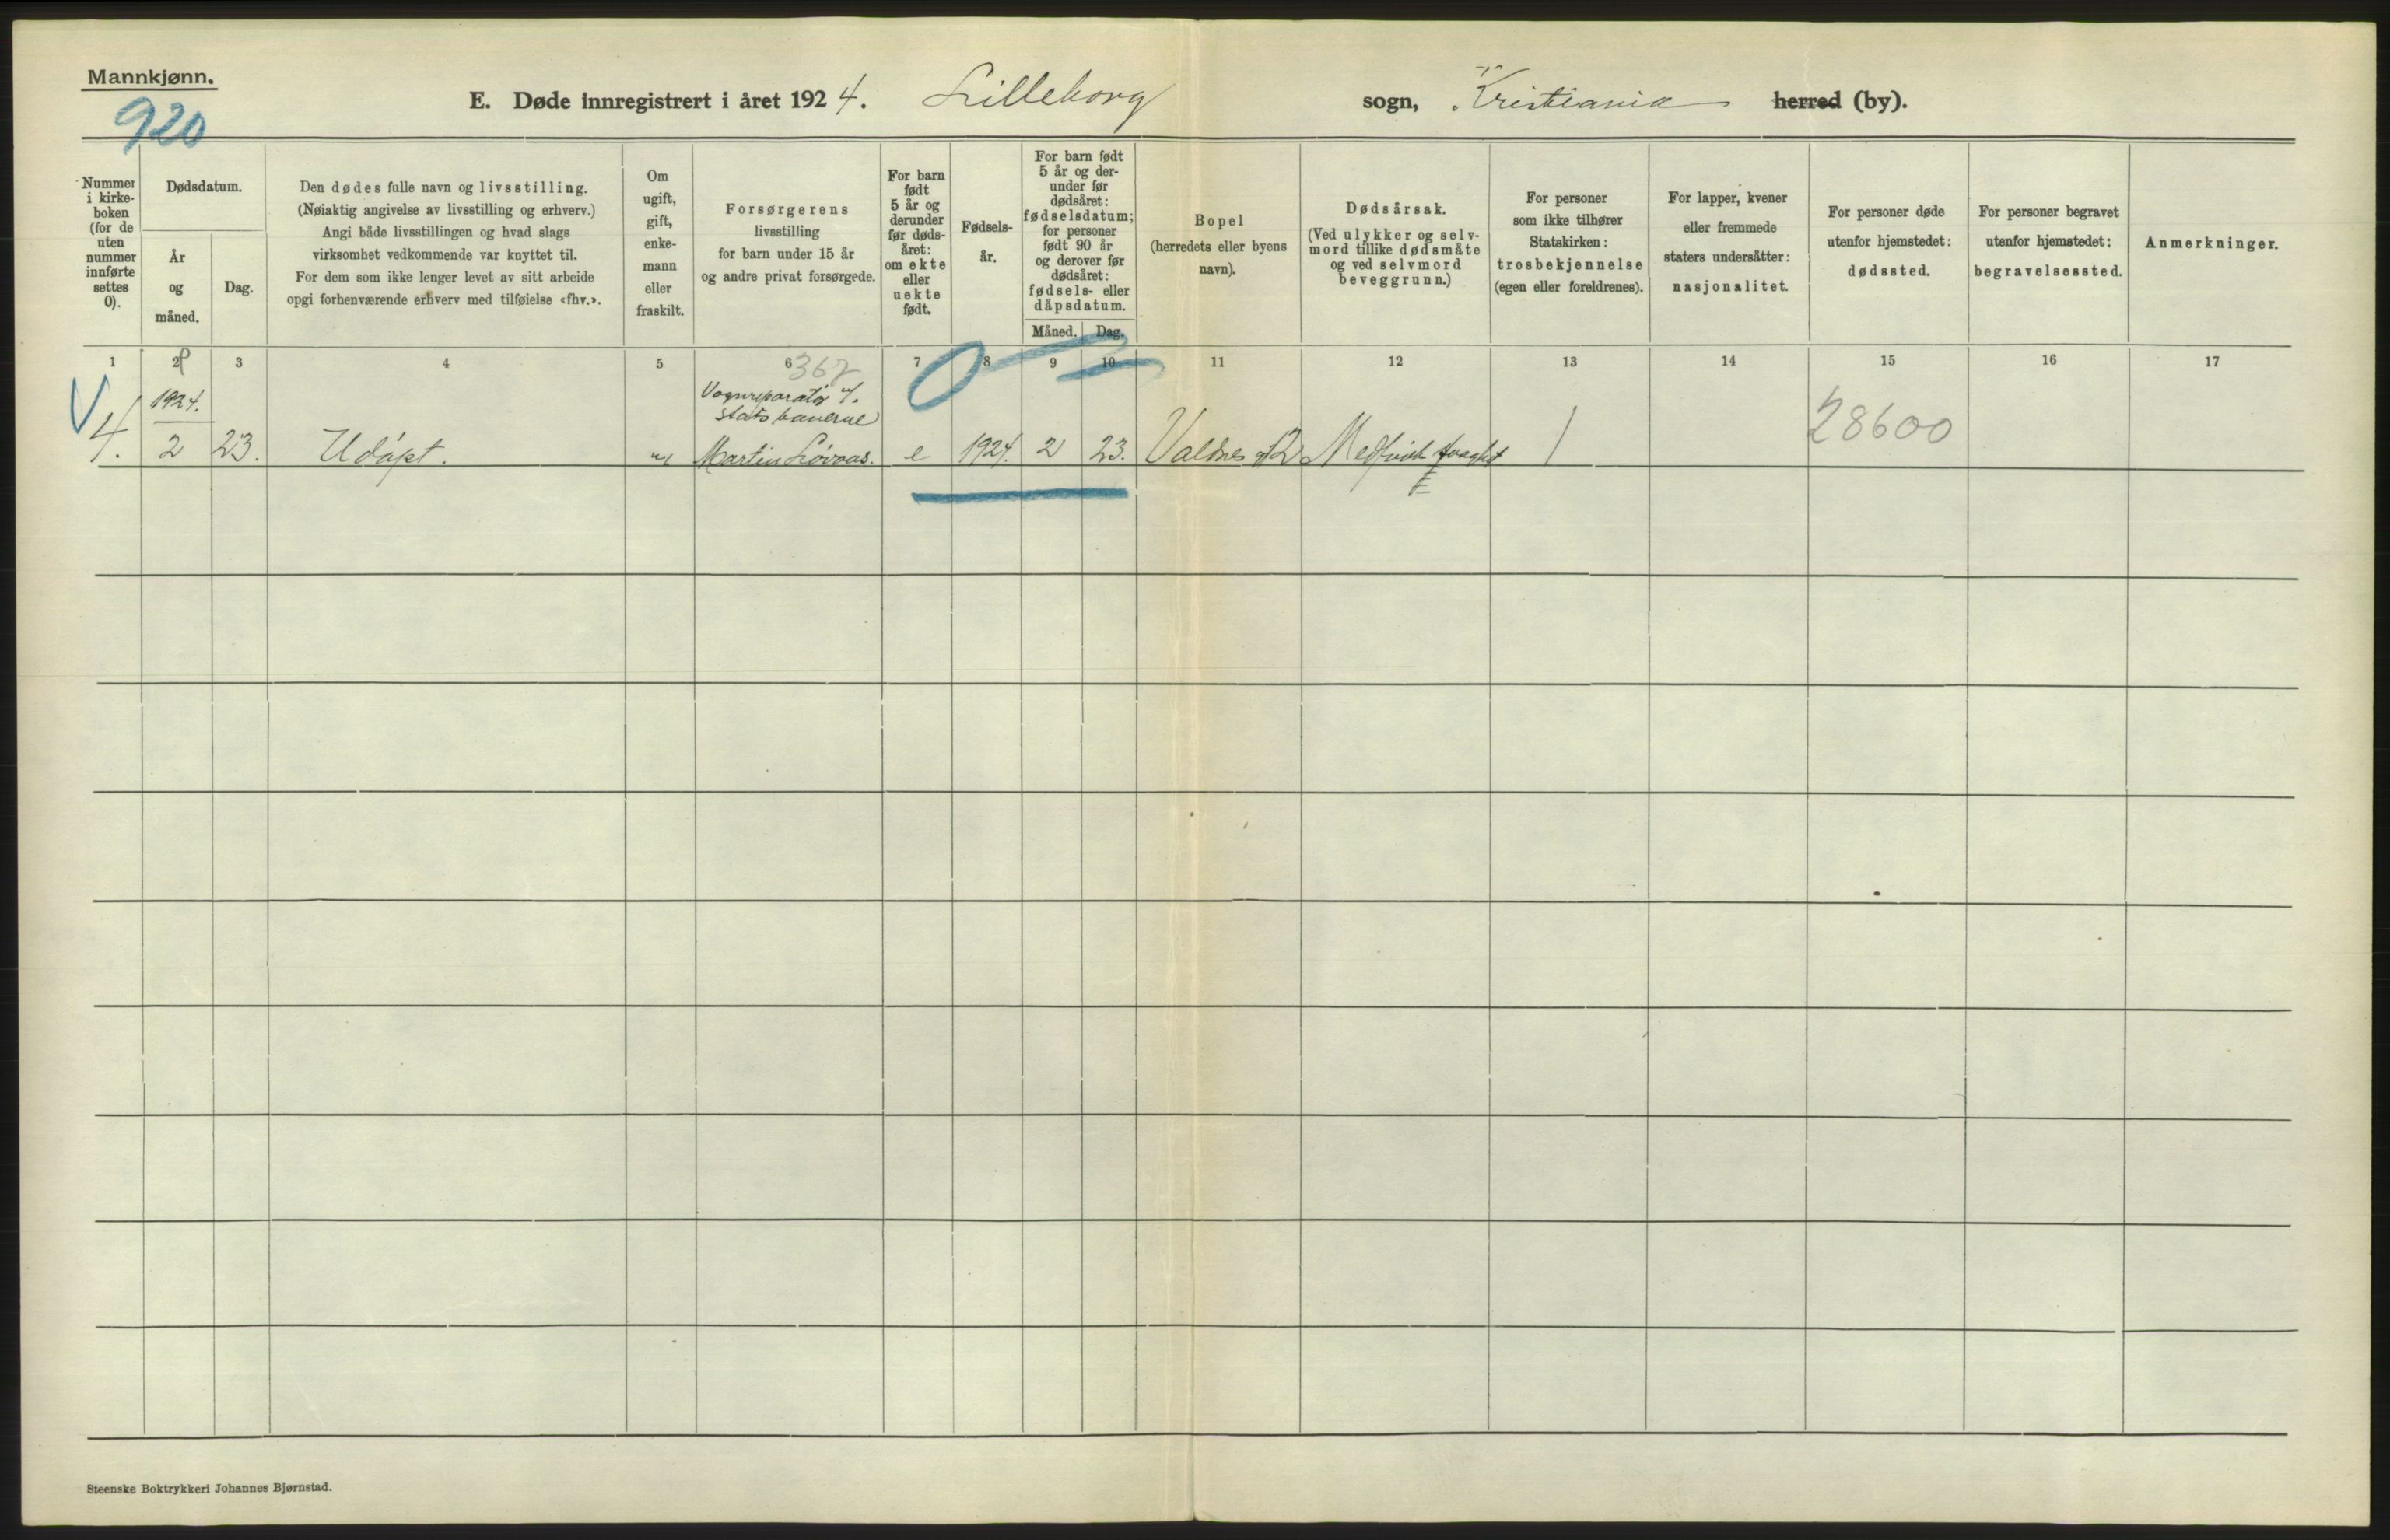 Mannkjønn.
920
E. Døde innregistrert i året 1924. Lilleborg sogn, Kristiania herred (by).
Nummer
i kirke-
boken
(for de
uten
nummer
innførte
settes
0).
Dødsdatum.
År
og
måned.
Dag.
Den dødes fulle navn og livsstilling.
(Nøiaktig angivelse av livsstilling og erhverv.)
Angi både livsstillingen og hvad slags
virksomhet vedkommende var knyttet til.
For dem som ikke lenger levet av sitt arbeide
opgi forhenværende erhverv med tilføielse «fhv.».
Om
ugift,
gift,
enke-
mann
eller
fraskilt.
Forsørgerens
livsstilling
for barn under 15 år
og andre privat forsørgede.
For barn
født
5 år og
derunder
før døds-
året:
om ekte
eller
uekte
født.
Fødsels-
år.
For barn født
5 år og der-
under før
dødsåret:
fødselsdatum;
for personer
født 90 år
og derover før
dødsåret:
fødsels- eller
dåpsdatum.
Måned. Dag.
Bopel
(herredets eller byens
navn).
Dødsårsak.
(Ved ulykker og selv-
mord tillike dødsmåte
og ved selvmord
beveggrunn.)
For personer
som ikke tilhører
Statskirken:
trosbekjennelse
(egen eller foreldrenes).
For lapper, kvener
eller fremmede
staters undersåtter:
nasjonalitet.
For personer døde
utenfor hjemstedet:
dødssted.
For personer begravet
utenfor hjemstedet:
begravelsessted.
Anmerkninger.
1 2 3 4 5 6 7 8 9 10 11 12 13 14 15 16 17
367
1924.
Vognreparatør v/.
statsbanerne
28600
4. 2 23. Udøpt. Martin Løvaas. e 1924. 2 23. Medfødt svaghet
Steenske Boktrykkeri Johannes Bjørnstad.